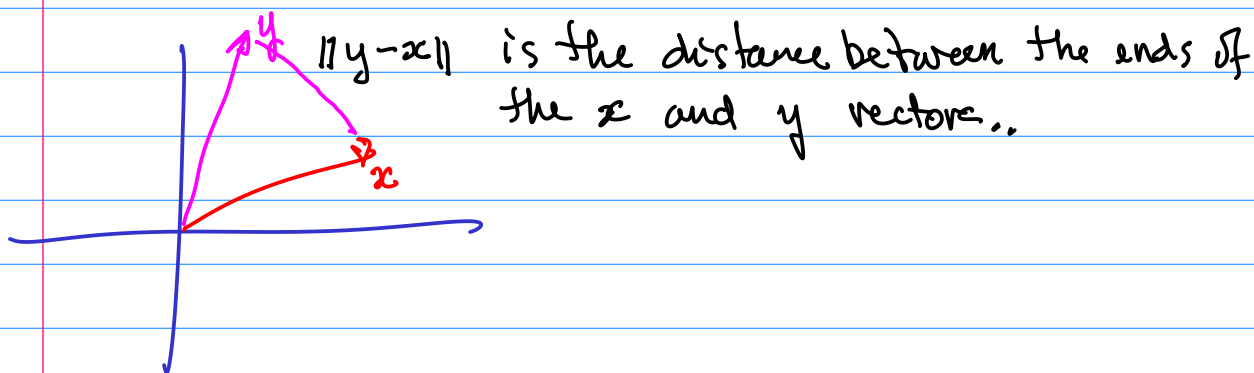 y ||y-x|| is the distance between the ends of
the x and y vectors..
x